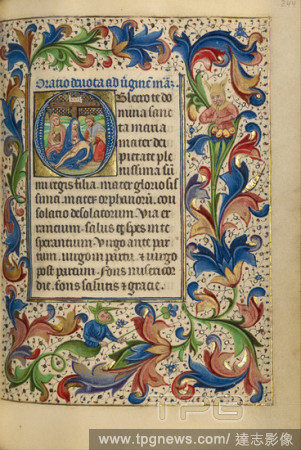 Oratio deuota ad uirginē mar
Obsecro te do
mina sanc
ta maria
mater dei
pietate ple
nissima sūi
mi regis filia. mater glorio sis
sima. mater orphanorū. con
solatio desolatorum. Via er
rancium. salus et spes in te
sperantium. Virgo ante par
tum. uirgo in partu. et uirgo
post partum. fons misericor
die. fons salutis et gracie.
TPG
www.tpgnews.com/ 達志影像